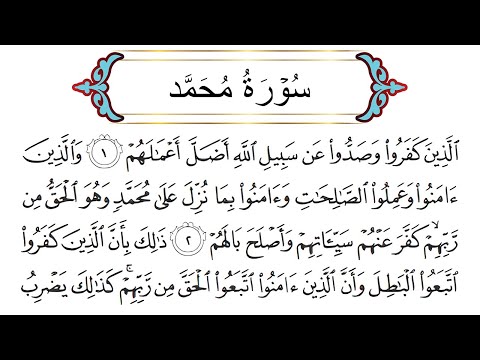 سُوۡرَةُ مُحَمَّد
الَّذِينَ كَفَرُوا۟ وَصَدُّوا۟ عَن سَبِيلِ اللَّهِ أَضَلَّ أَعۡمَٰلَهُمۡ ١ وَالَّذِينَ
ءَامَنُوا۟ وَعَمِلُوا۟ الصَّٰلِحَٰتِ وَءَامَنُوا۟ بِمَا نُزِّلَ عَلَىٰ مُحَمَّدٖ وَهُوَ الۡحَقُّ مِن
رَّبِّهِمۡ كَفَّرَ عَنۡهُمۡ سَيِّـَٔاتِهِمۡ وَأَصۡلَحَ بَالَهُمۡ ٢ ذَٰلِكَ بِأَنَّ الَّذِينَ كَفَرُوا۟
اتَّبَعُوا۟ الۡبَٰطِلَ وَأَنَّ الَّذِينَ ءَامَنُوا۟ اتَّبَعُوا۟ الۡحَقَّ مِن رَّبِّهِمۡۚ كَذَٰلِكَ يَضۡرِبُ